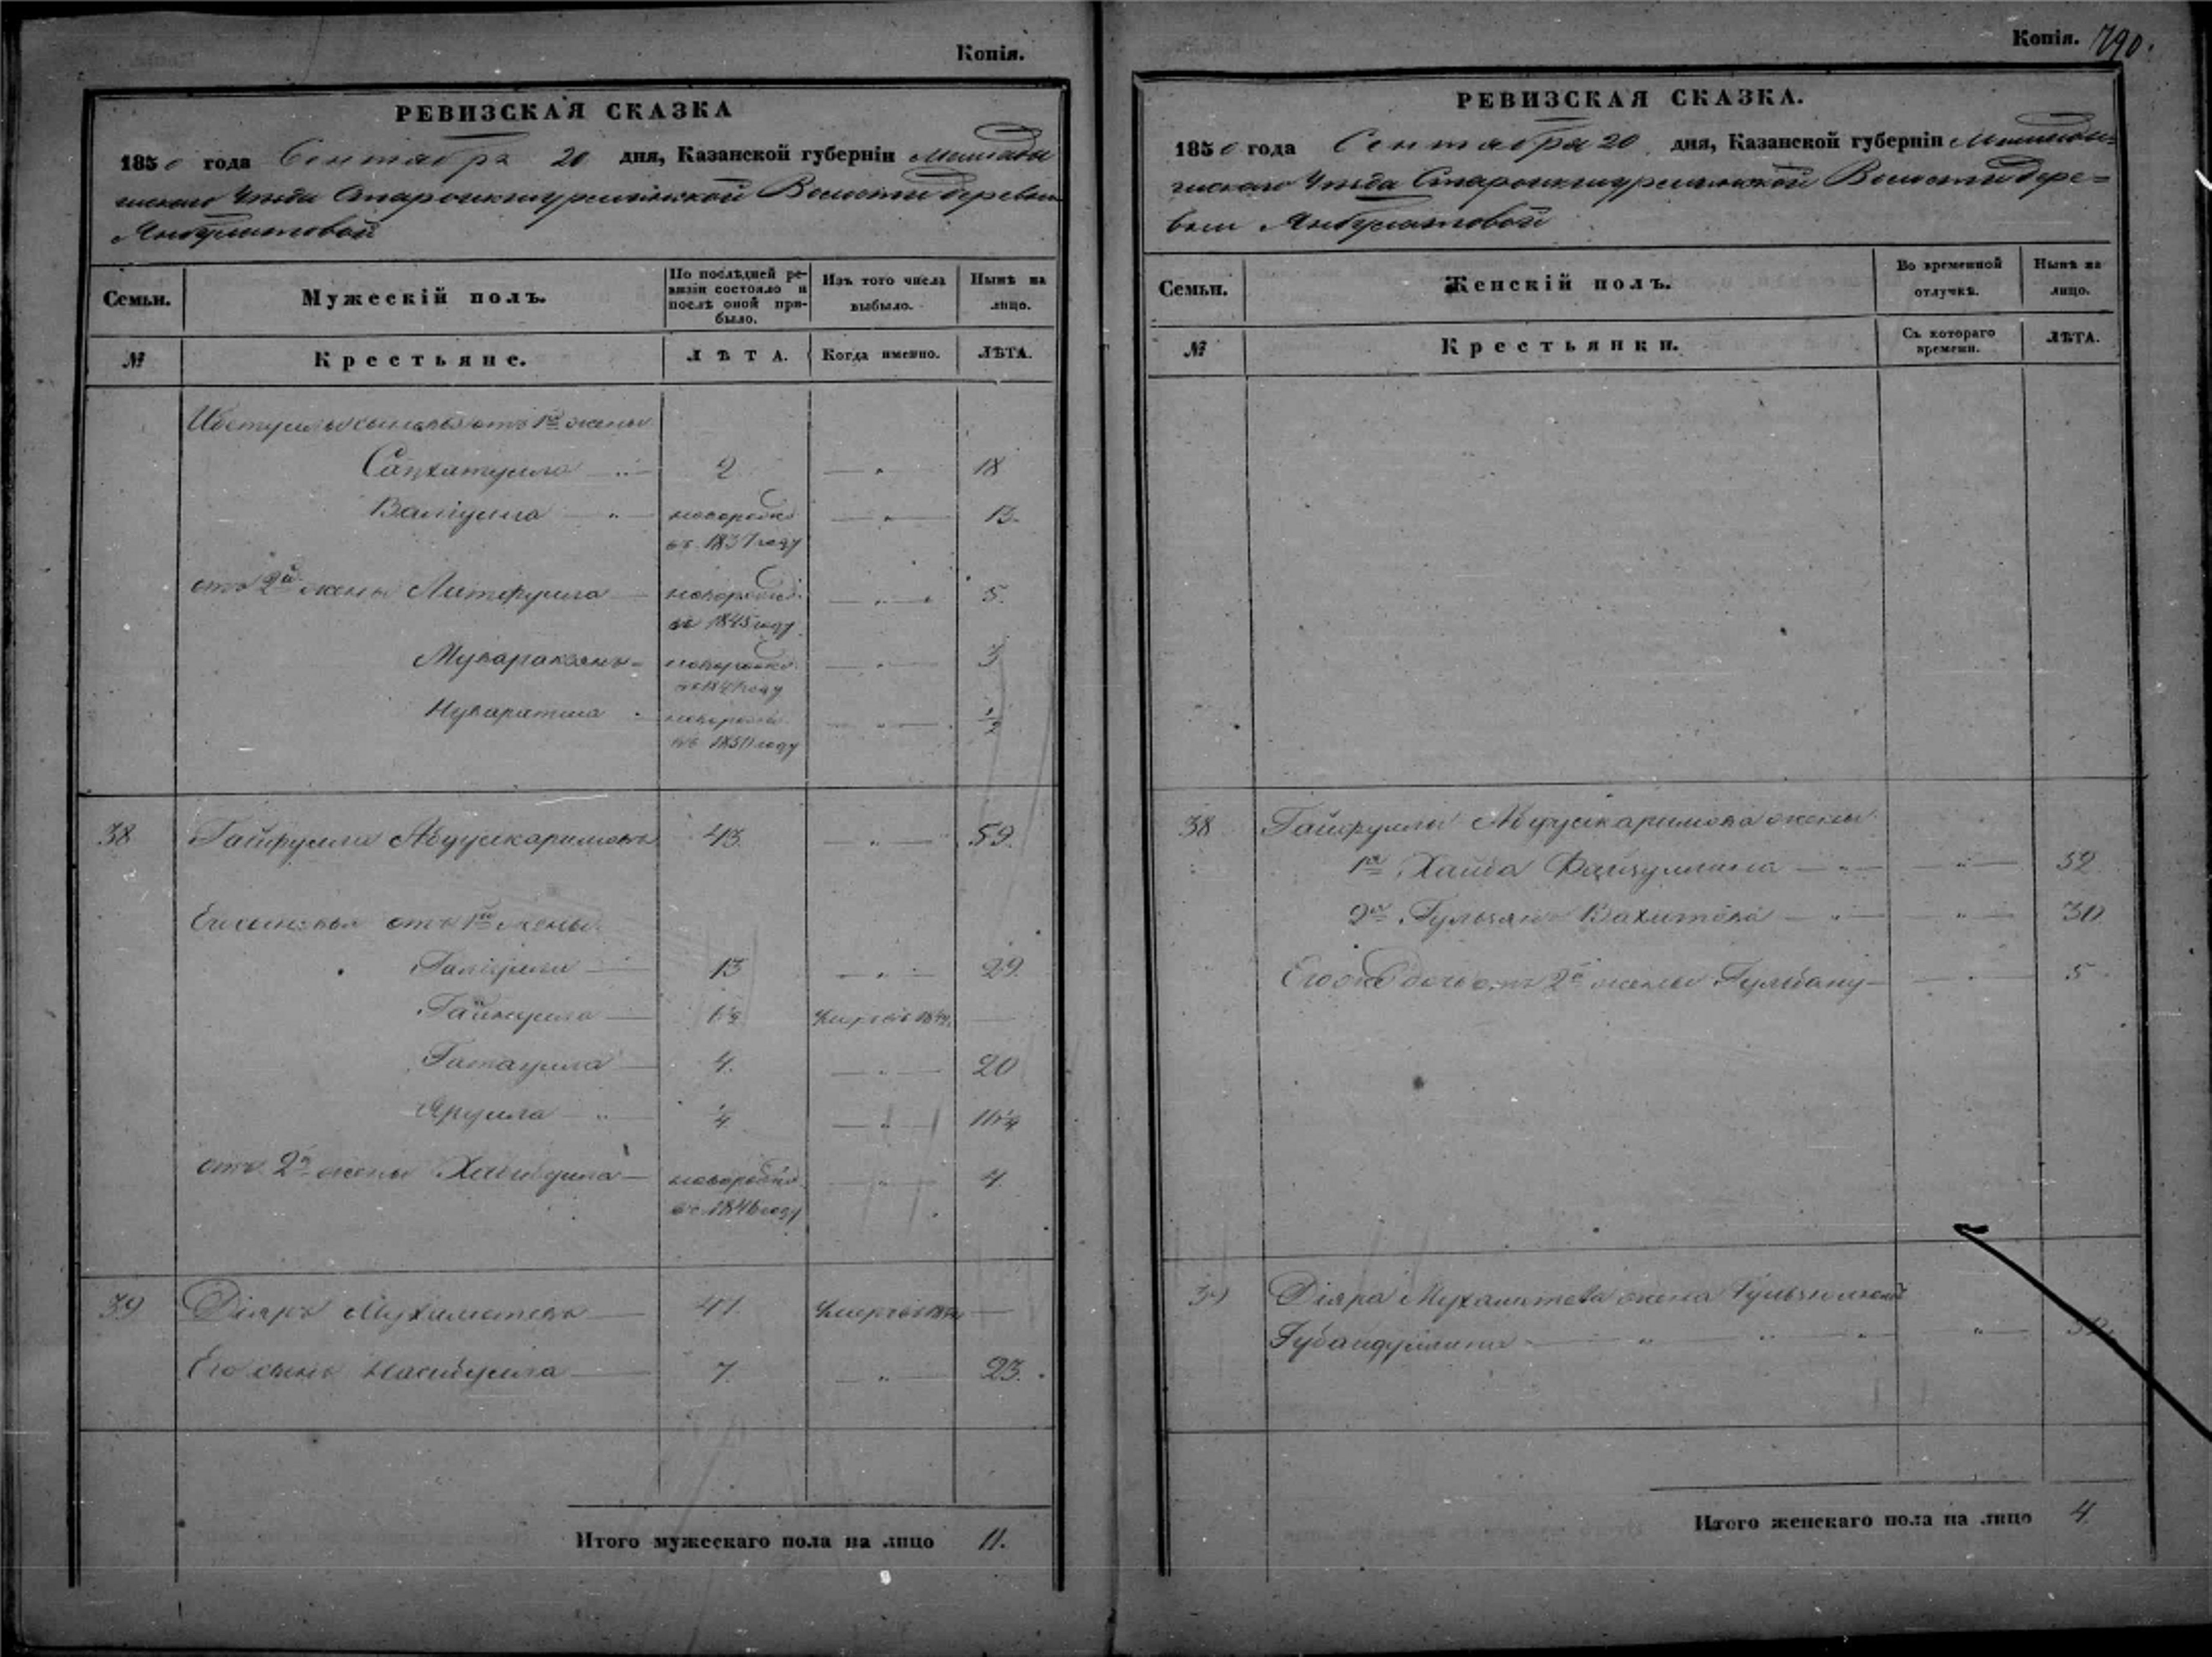 Копія.
РЕВИЗСКАЯ СКАЗКА
1850 года Сентября 20 дня, Казанской губерніи Мамады
шскаго Уѣзда Волости деревни
Янбулатовой
Семьи.
Мужескій полъ.
По послѣдней ре-
визіи состояло и
послѣ оной при-
было.
Изъ того числа
выбыло.
Нынѣ на
лицо.
№
Крестьяне.
ЛѢТА.
Когда именно.
ЛѢТА.
сыновья отъ 1й жены
2 18
Валиулла новорожд 13.
въ 1837 году
отъ 2й жены Литфулла новорожд. 5.
въ 1845 году
Мукаракзянъ новорожд. 3
году
новорожд. 1/2
въ 1850 году
38 Гайфулла Абдулкаримовъ 43. 59.
Его сыновья отъ 1й жены
Галиулла 13 29.
Гайнулла
Гатаулла 4. 20
Ярулла 1/4 16 1/4
отъ 2й жены Хабибулла новорожд. 4.
въ 1846 году
39 Діяръ Мухаметевъ 41.
Его сынъ Насибулла 7. 23.
Итого мужескаго пола на лицо 11.
Копія. 790.
РЕВИЗСКАЯ СКАЗКА.
1850 года Сентября 20 дня, Казанской губерніи Мамады=
шскаго Уѣзда Волости дере=
вни Янбулатовой
Семьи.
Женскій полъ.
Во временной
отлучкѣ.
Нынѣ на
лицо.
№
Крестьянки.
Съ котораго
времени.
ЛѢТА.
38 Гайфуллы Абдулкаримова жены
1я Файзуллина 52
2я Вахитова 30
Его дочь отъ 2й жены Гулбану 5
39 Діяра Мухаметева жена
Губайдуллина
Итого женскаго пола на лицо 4.